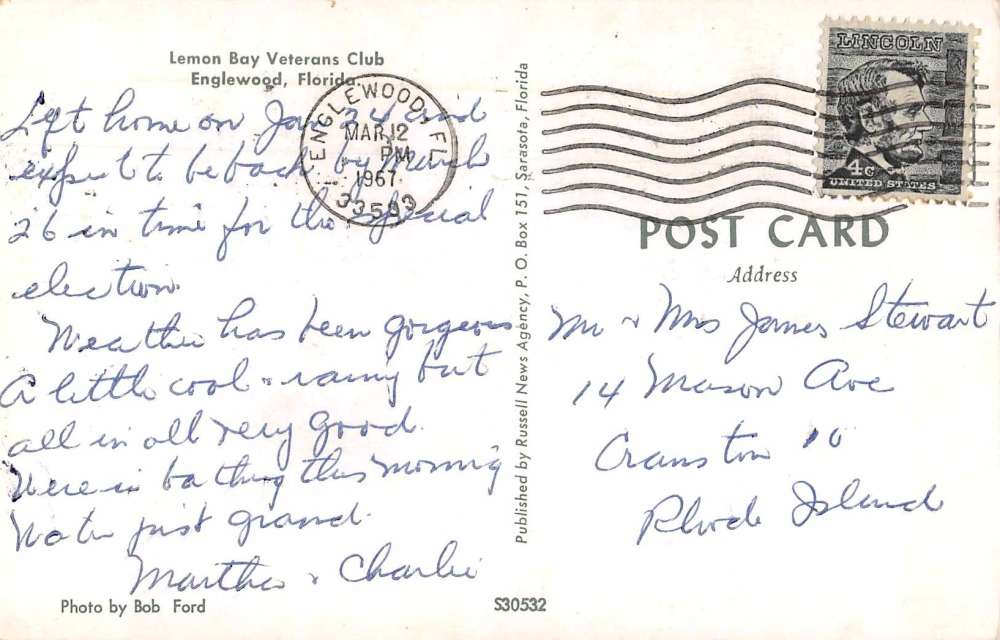 Lemon Bay Veterans Club
Englewood, Florida
Left home on Jan 24 and
expect to be back by March
26 in time for the special
election.
Weather has been gorgeous
A little cool & rainy but
all in all very good.
Were in bathing this morning
Water just grand.
Martha & Charlie
Photo by Bob Ford
ENGLEWOOD, FL
MAR 12
PM
1967
33593
Published by Russell News Agency, P. O. Box 151, Sarasota, Florida
S30532
LINCOLN
4¢
UNITED STATES
POST CARD
Address
Mr & Mrs James Stewart
14 Mason Ave
Cranston 10
Rhode Island